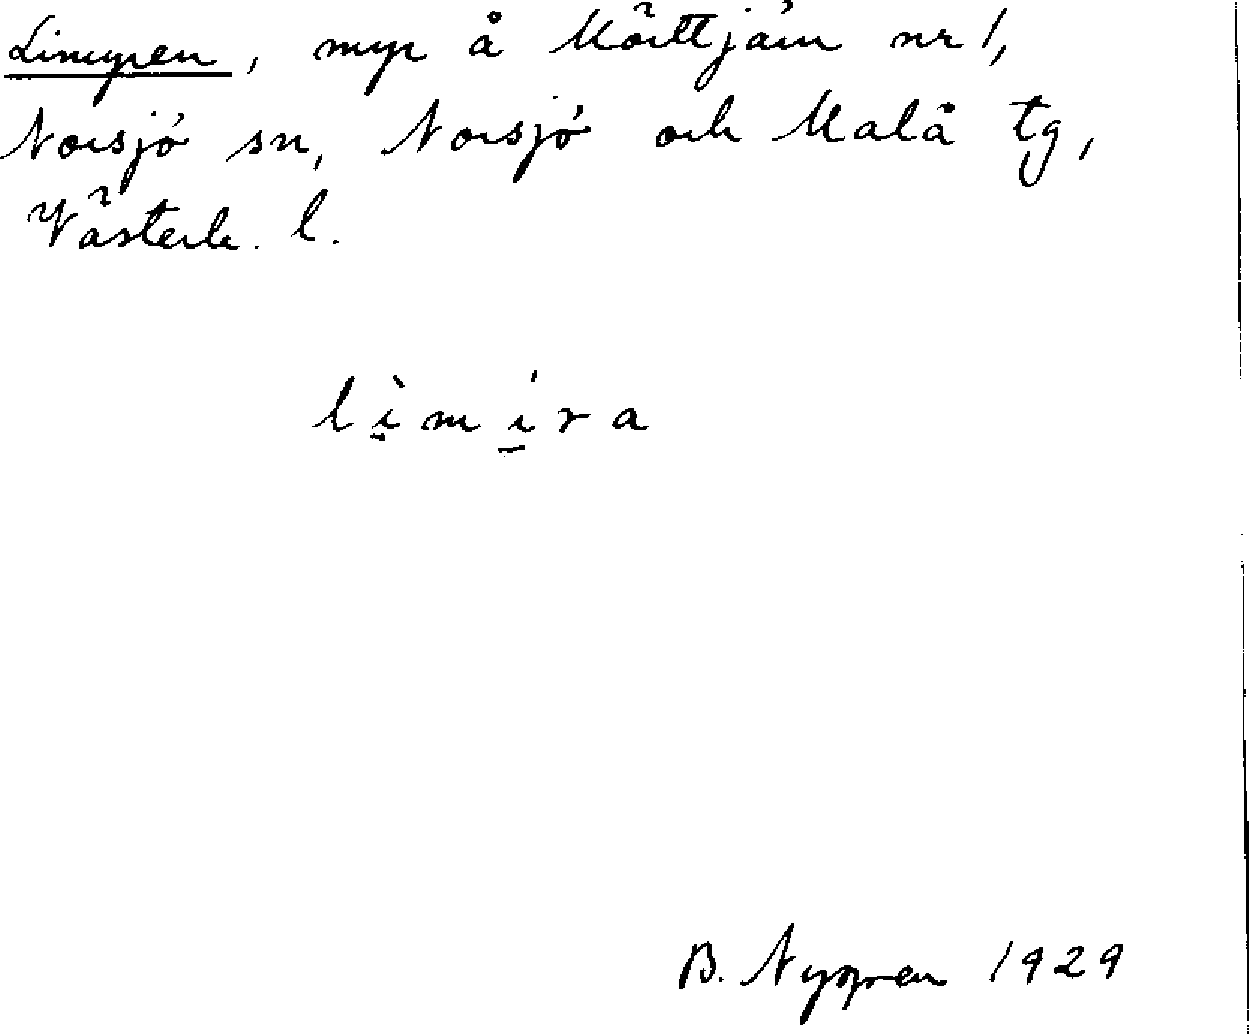 Limyren, myr å Mörttjärn nr 1,
Norsjö sn, Norsjö och Malå tg,
Västerb. l.
lì̠mí̠ra
B. Nygren 1929